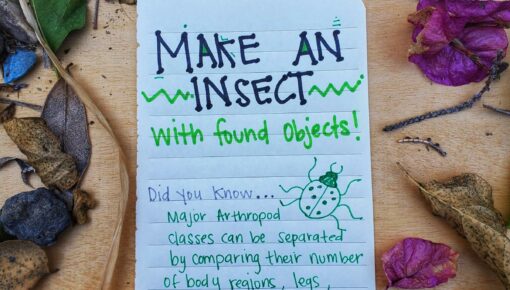 MAKE AN
INSECT
With found Objects!
Did you Know...
Major Arthropod
classes can be separated
by comparing their number
of body regions, legs,